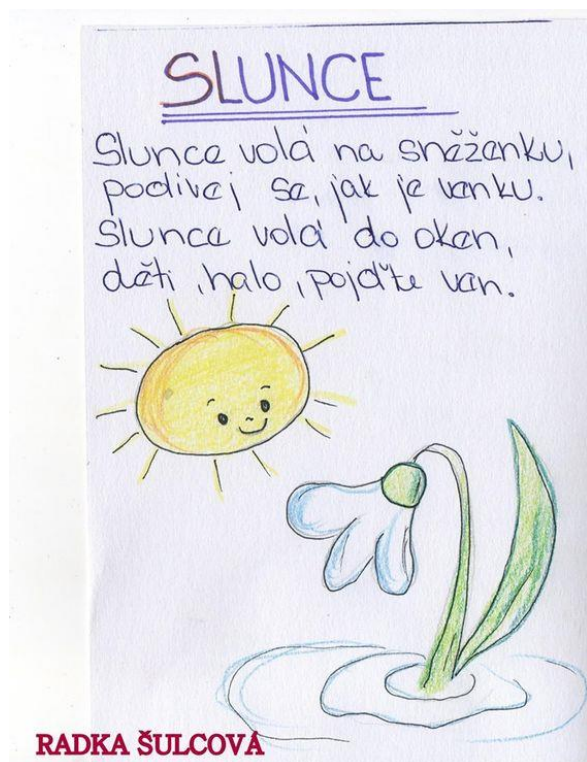 SLUNCE
Slunce volá na sněženku,
podívej se, jak je venku.
Slunce volá do oken,
děti, halo, pojďte ven.
RADKA ŠULCOVÁ